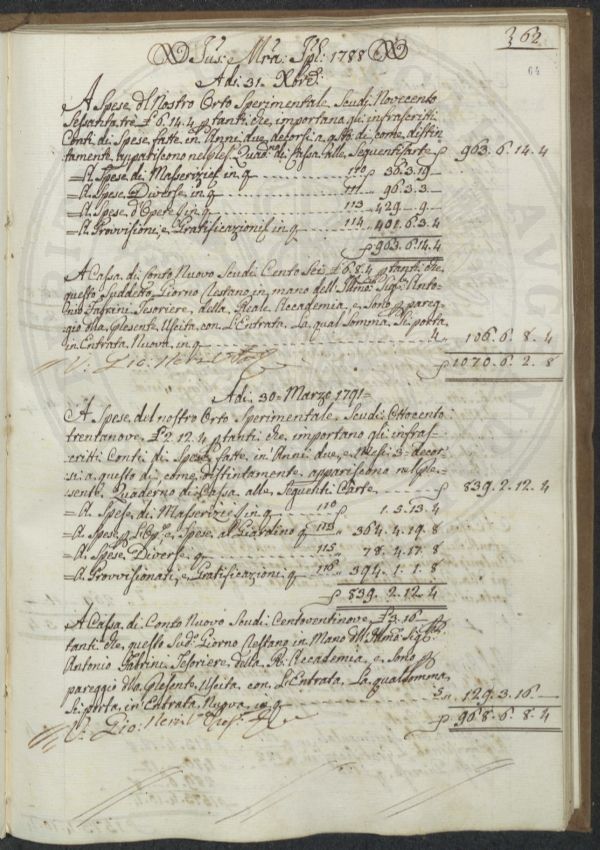 362
64
Jus: Mra: Spl: 1788
Adi 31 Xbre
A Spese del Nostro Orto Sperimentale Scudi Novecento
Sessanta tre £ 6.14.4 p tanti che importano gl'infrascritti
Conti di Spese fatte in Anni due decorsi a qto di come distin
tamente appariscono nel ples. Quadno di Cassa alle Seguenti Carte 963.6.14.4
A Spese di Masserizie in q 110 36.3.19
A Spese Diverse in q 111 96.3.3
A Spese d'Opere in q 113 429.9
A Provvisioni, e Gratificazioni in q 114 401.6.3.4
963.6.14.4
A Cassa di Conto Nuovo Scudi Cento Sei £ 6.8.4 p tanti che
questo Suddetto Giorno Restano in mano dell' Illmo Sigr Anto
nio Fabrini Tesoriere della Reale Accademia e Sono p pareg
gio della Presente Uscita con L'Entrata La qual Somma Si porta
in Entrata Nuova in q 4 106.6.8.4
1070.6.2.8
Adi 30 Marzo 1791
A Spese del nostro Orto Sperimentale Scudi Ottocento
trentanove £ 2.12.4 p tanti che importano gli infras-
critti Conti di Spese fatte in Anni due, e Mesi 3 decor
si a questo di come distintamente appariscono nel ple-
sente Quaderno di Cassa alle Seguenti Carte 839.2.12.4
A Spese di Masserizie in q 110 1.5.13.4
A Spese p L'Op e Spese al Giardino q 113 364.4.19.8
A Spese Diverse q 115 78.4.17.8
A Provvisionati, e Gratificazioni q 116 394.1.1.8
839.2.12.4
A Cassa di Conto Nuovo Scudi Centoventinove £ 3.16 p
tanti che questo Sudo Giorno Restano in Mano dell' Illmo Sigr
Antonio Fabrini Tesoriere della Rl Accademia e Sono p
pareggio della Presente Uscita con L'Entrata La qual Somma
Si porta in Entrata Nuova in q 5 129.3.16
968.6.8.4